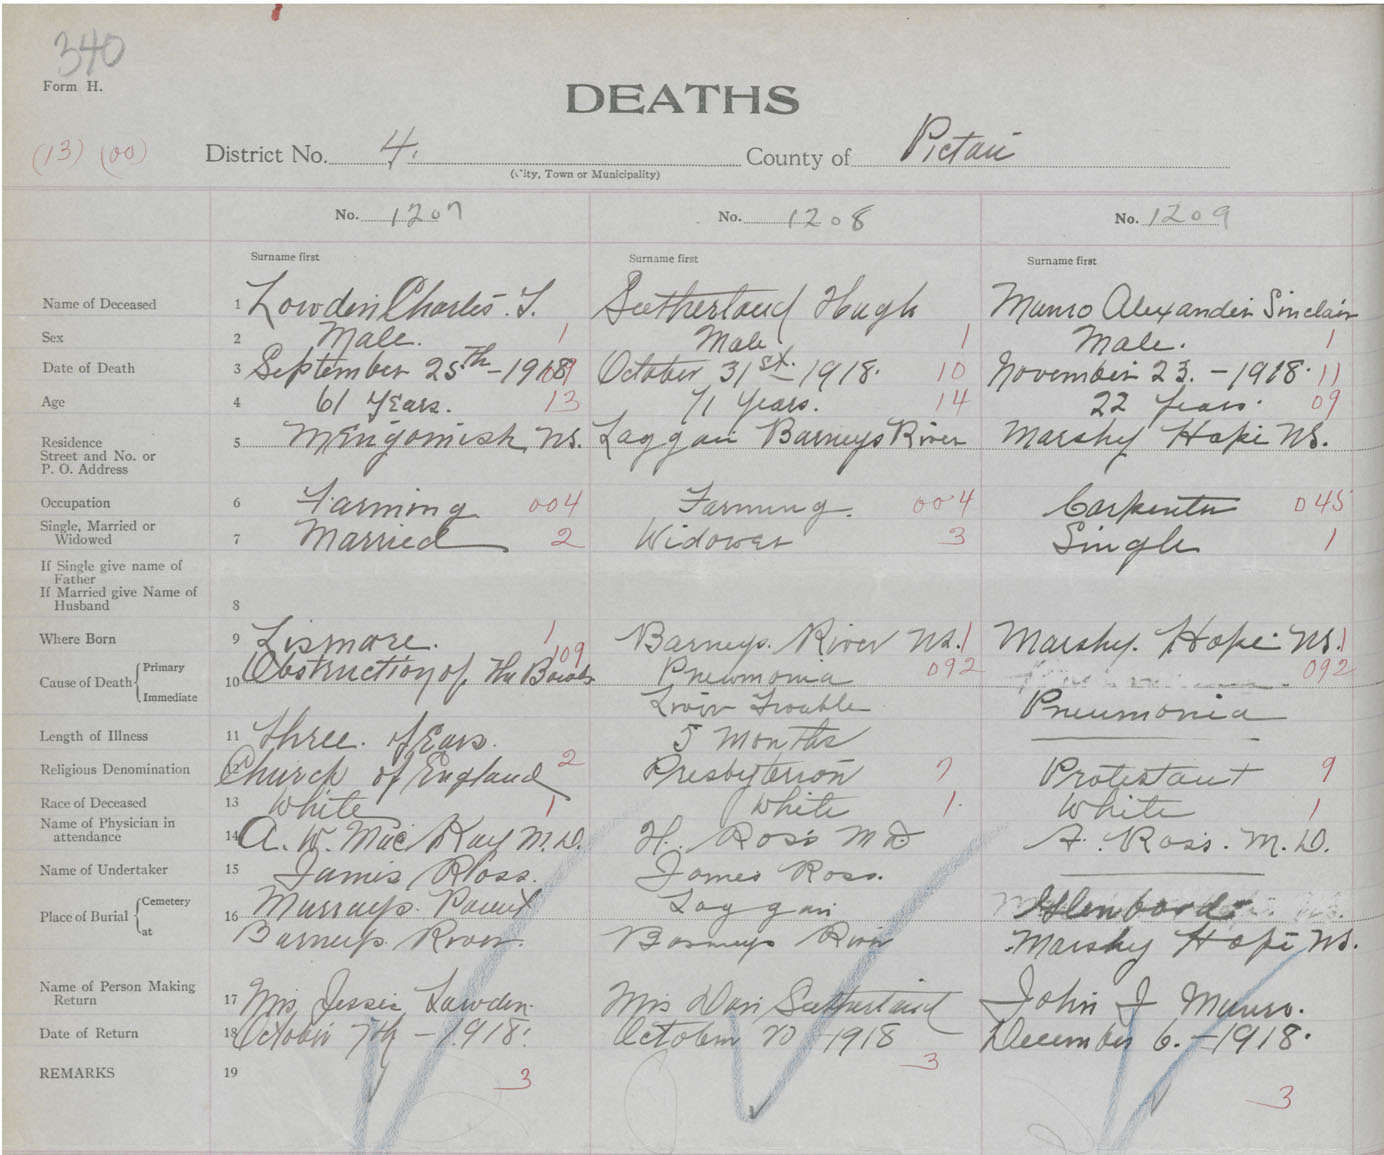 340
Form H.
DEATHS
(13) (00)
District No. 4. County of Pictou
(City, Town or Municipality)
No. 1207 No. 1208 No. 1209
Surname first Surname first Surname first
Name of Deceased 1 Lowden Charles. T. Sutherland Hugh Munro Alexander Sinclair
Sex 2 Male. 1 Male 1 Male. 1
Date of Death 3 September 25th - 1918 09 October 31st. 1918. 10 November 23. - 1918. 11
Age 4 61 Years. 13 71 Years. 14 22 Years. 09
Residence
Street and No. or
P. O. Address
5 Merigomish, NS. Laggan Barneys River Marshy Hope NS.
Occupation 6 Farming 004 Farming. 004 Carpenter 045
Single, Married or
Widowed
7 Married 2 Widower 3 Single 1
If Single give name of
Father
If Married give Name of
Husband
8
Where Born 9 Lismore. 1 Barneys. River NS. 1 Marshy. Hope. NS. 1
Cause of Death Primary
Immediate
10 Obstruction of the Bowels 109 Pneumonia 092 092
Liver Trouble Pneumonia
Length of Illness 11 Three. Years. 5 Months
Religious Denomination 12 Church of England 2 Presbyterian 7 Protestant 9
Race of Deceased 13 White 1 White 1. White 1
Name of Physician in
attendance
14 A. W. Mac Kay M.D. H. Ross M D A. Ross. M. D.
Name of Undertaker 15 James Ross. James Ross.
Place of Burial Cemetery
at
16 Murrays. Point Laggan Glenbard
Barneys River. Barneys River Marshy Hope NS.
Name of Person Making
Return
17 Mrs Jessie Lowden. Mrs Dan Sutherland John J Munro.
Date of Return 18 October 7th - 1918. October 20 1918 December 6. - 1918.
REMARKS 19
3 3 3